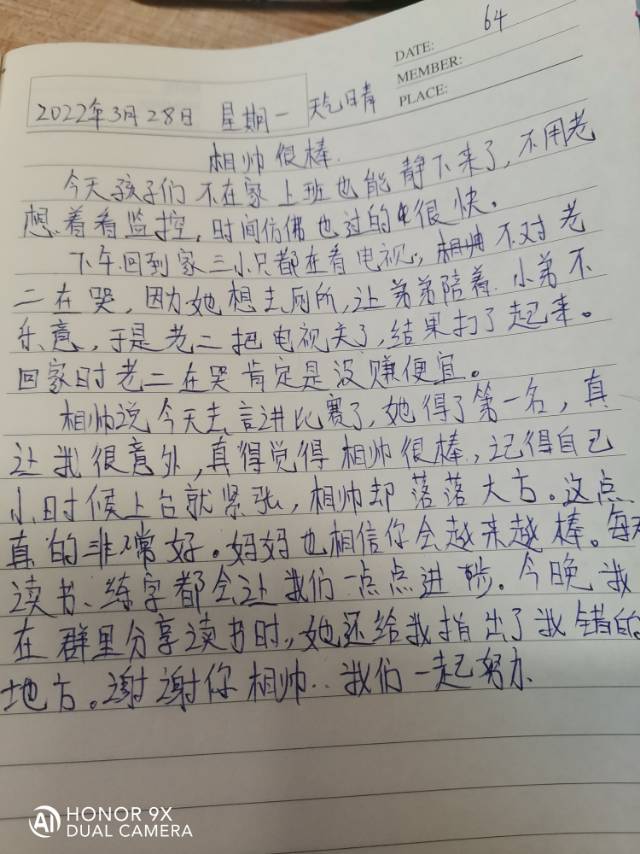 64
DATE:
MEMBER:
PLACE:
2022年3月28日 星期一 天气晴
相帅很棒.
今天孩子们不在家上班也能静下来了,不用老
想着看监控,时间仿佛也过的很快。
下午回到家三小只都在看电视,相帅不对老
二在哭,因为她想去厕所,让弟弟陪着.小弟不
乐意,于是老二把电视关了,结果打了起来。
回家时老二在哭肯定是没赚便宜。
相帅说今天去言讲比赛了,她得了第一名,真
让我很意外,真得觉得相帅很棒,记得自己
小时候上台就紧张,相帅却落落大方。这点
真的非常好。妈妈也相信你会越来越棒。每天
读书、练字都会让我们一点点进步。今晚我
在群里分享读书时,她还给我指出了我错的
地方。谢谢你相帅..我们一起努力.
AI HONOR 9X
DUAL CAMERA